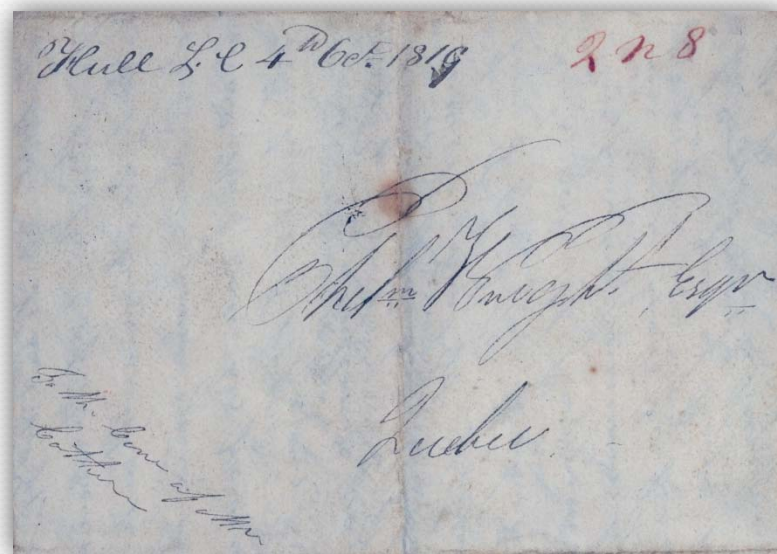 Hull L.C 4th Oct. 1819
2 n 8
Knight Esqr
Quebec
To the Care of Mr